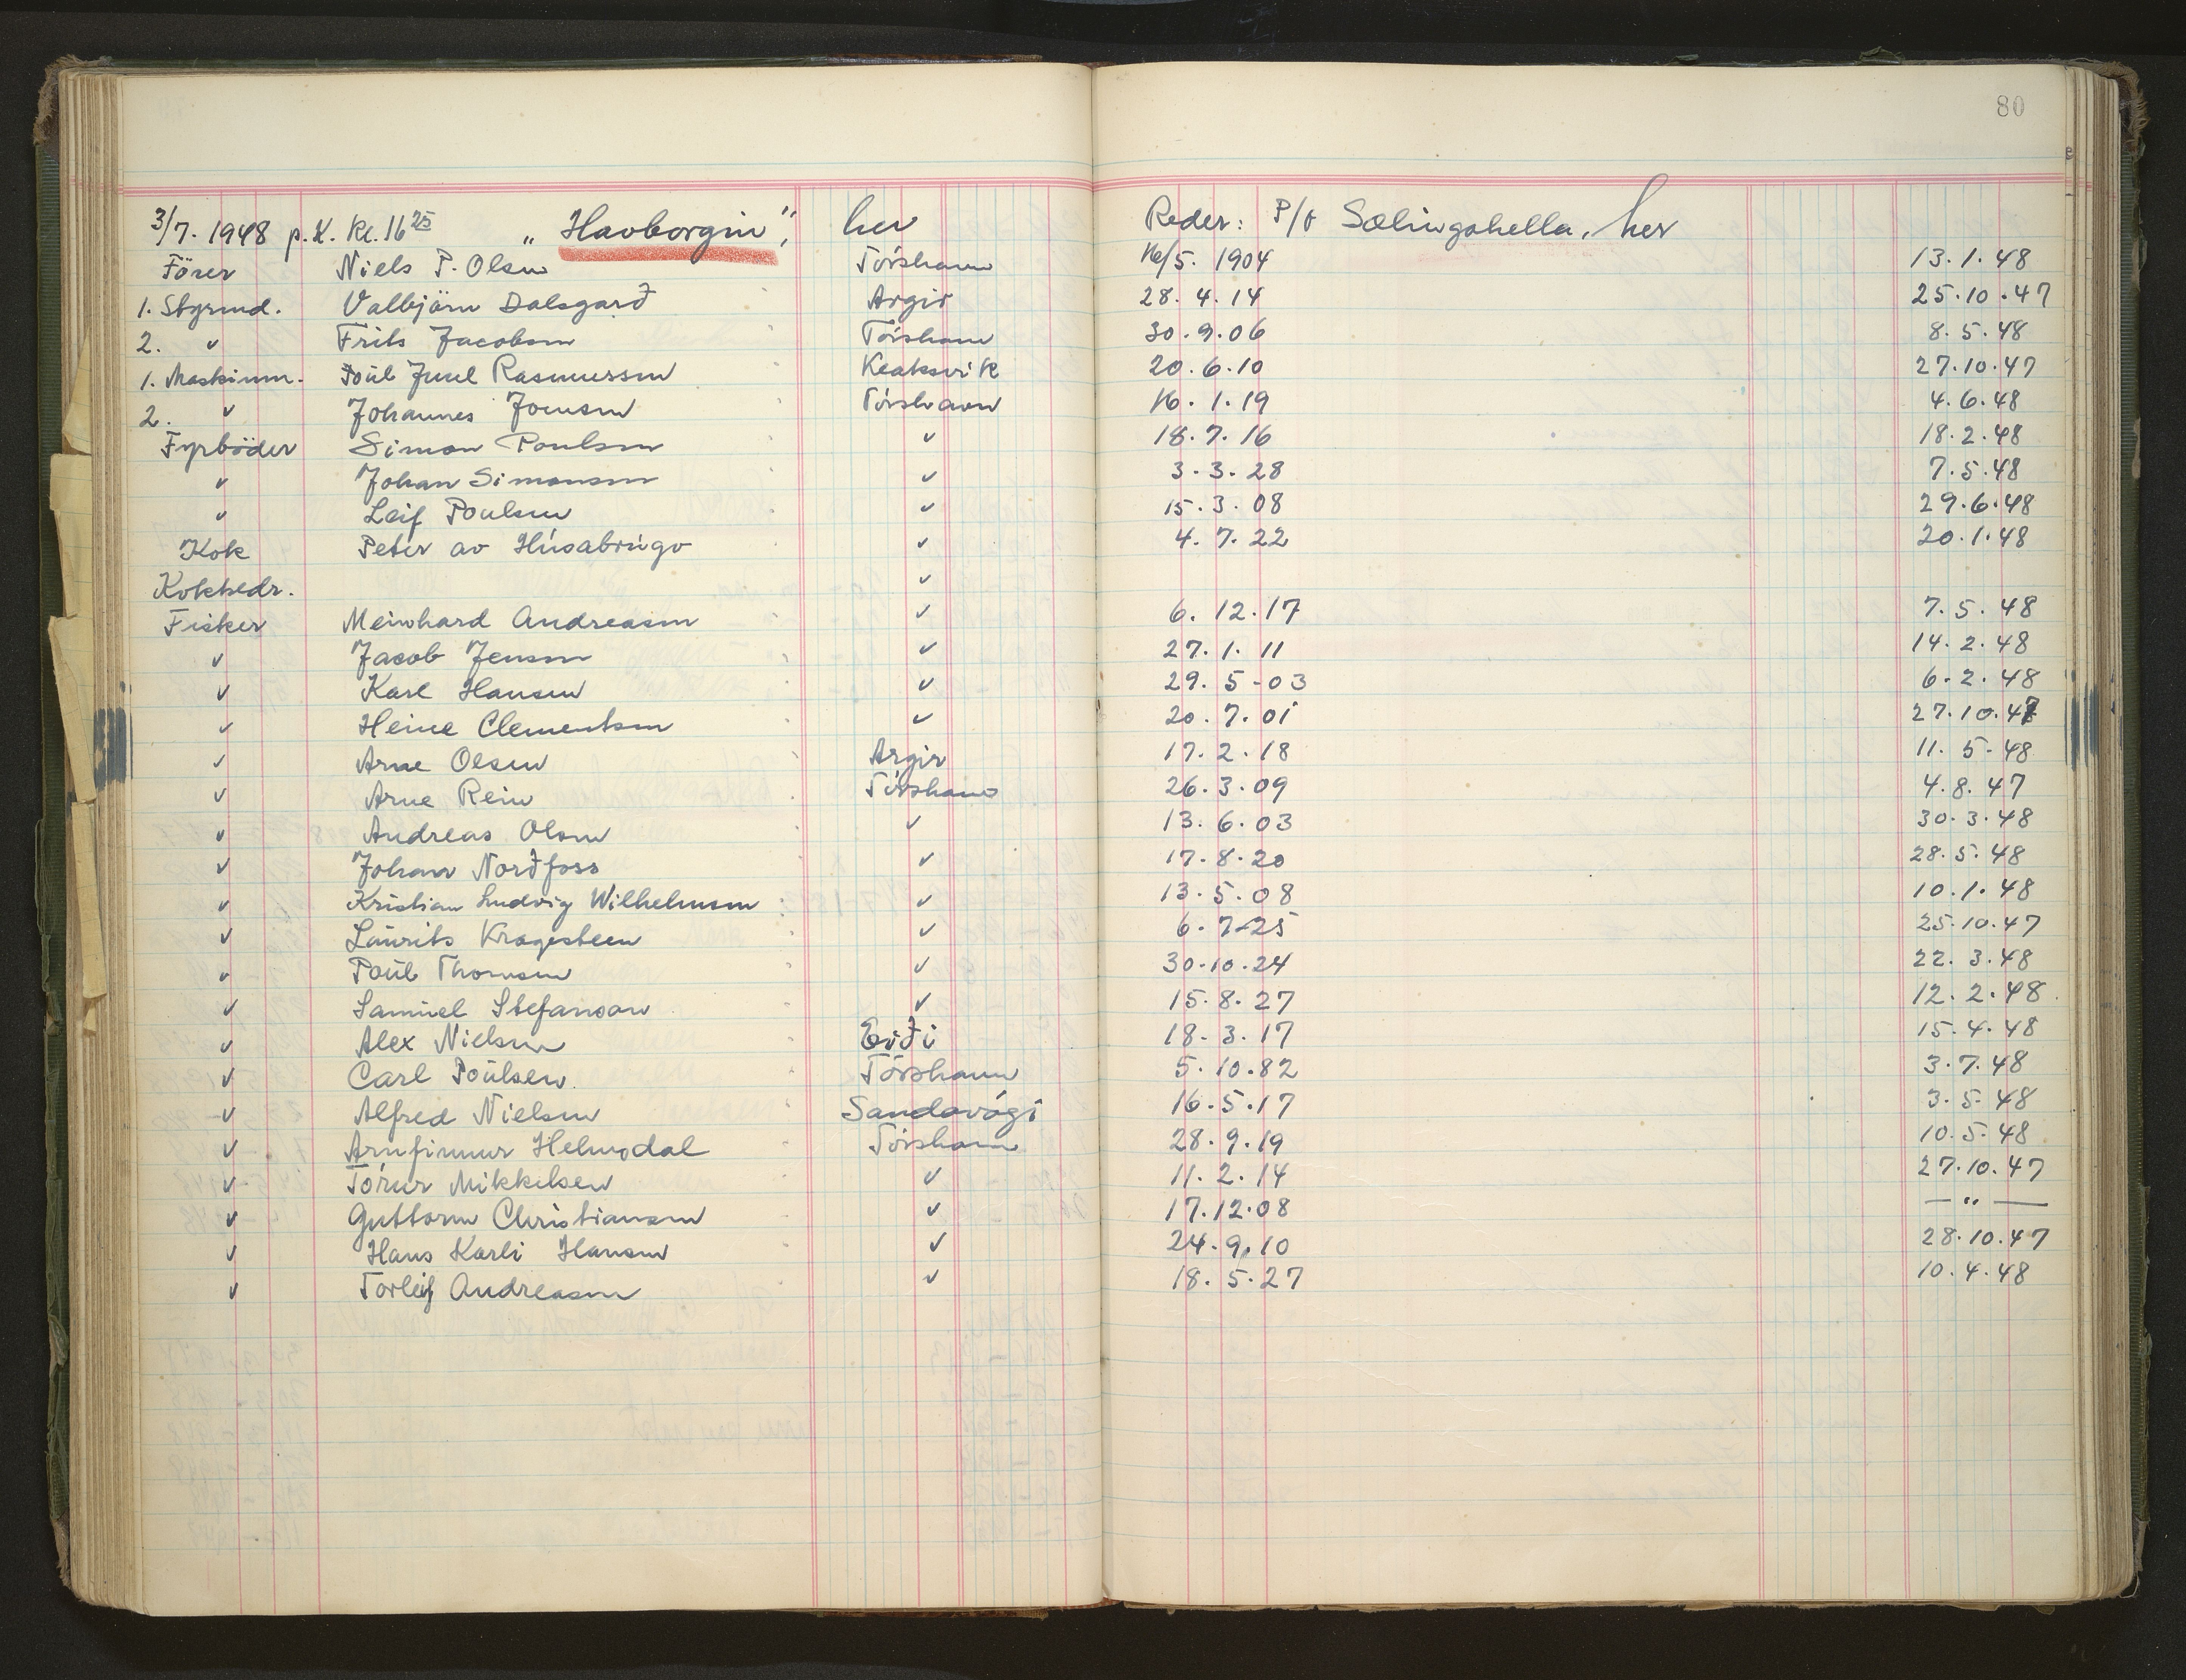 80
3/7. 1948 p. K. Kl. 16 25 „Havborgin", her Reder: P/f Sælingshella, her
Förer Niels P. Olsen Tórshavn 16/5. 1904 13.1.48
1. Styrmd. Valbjörn Dalsgarð Argir 28.4.14 25.10.47
2. ✓ Frits Jacobsen Tórshavn 30.9.06 8.5.48
1. Maskinm. Poul Juul Rasmussen Klaksvik 20.6.10 27.10.47
2. ✓ Johannes Joensen Tórshavn 16.1.19 4.6.48
Fyrböder Simon Poulsen ✓ 18.7.16 18.2.48
✓ Johan Simonsen ✓ 3.3.28 7.5.48
✓ Leif Poulsen ✓ 15.3.08 29.6.48
Kok Peter av Húsabrúgv ✓ 4.7.22 20.1.48
Kokkedr. ✓
Fisker Meinhard Andreasen ✓ 6.12.17 7.5.48
✓ Jacob Jensen ✓ 27.1.11 14.2.48
✓ Karl Hansen ✓ 29.5-03 6.2.48
✓ Heine Clementsen ✓ 20.7.01 27.10.47
✓ Arne Olsen Argir 17.2.18 11.5-48
✓ Arne Rein Tórshavn 26.3.09 4.8.47
✓ Andreas Olsen ✓ 13.6.03 30.3.48
✓ Johan Norðfoss ✓ 17.8.20 28.5.48
✓ Kristian Ludvig Wilhelmsen ✓ 13.5.08 10.1.48
✓ Laurits Kragesteen ✓ 6.7-25 25.10.47
✓ Poul Thomsen ✓ 30.10.24 22.3.48
✓ Samuel Stefanson ✓ 15.8.27 12.2.48
✓ Alex Nielsen Eiði 18.3.17 15.4.48
✓ Carl Poulsen Tórshavn 5.10.82 3.7.48
✓ Alfred Nielsen Sandavági 16.5.17 3.5.48
✓ Arnfinnur Helmsdal Tórshavn 28.9.19 10.5.48
✓ Tórur Mikkelsen ✓ 11.2.14 27.10.47
✓ Guttorm Christiansen ✓ 17.12.08 — " —
✓ Hans Karli Hansen ✓ 24.9.10 28.10.47
✓ Torleif Andreasen ✓ 18.5.27 10.4.48